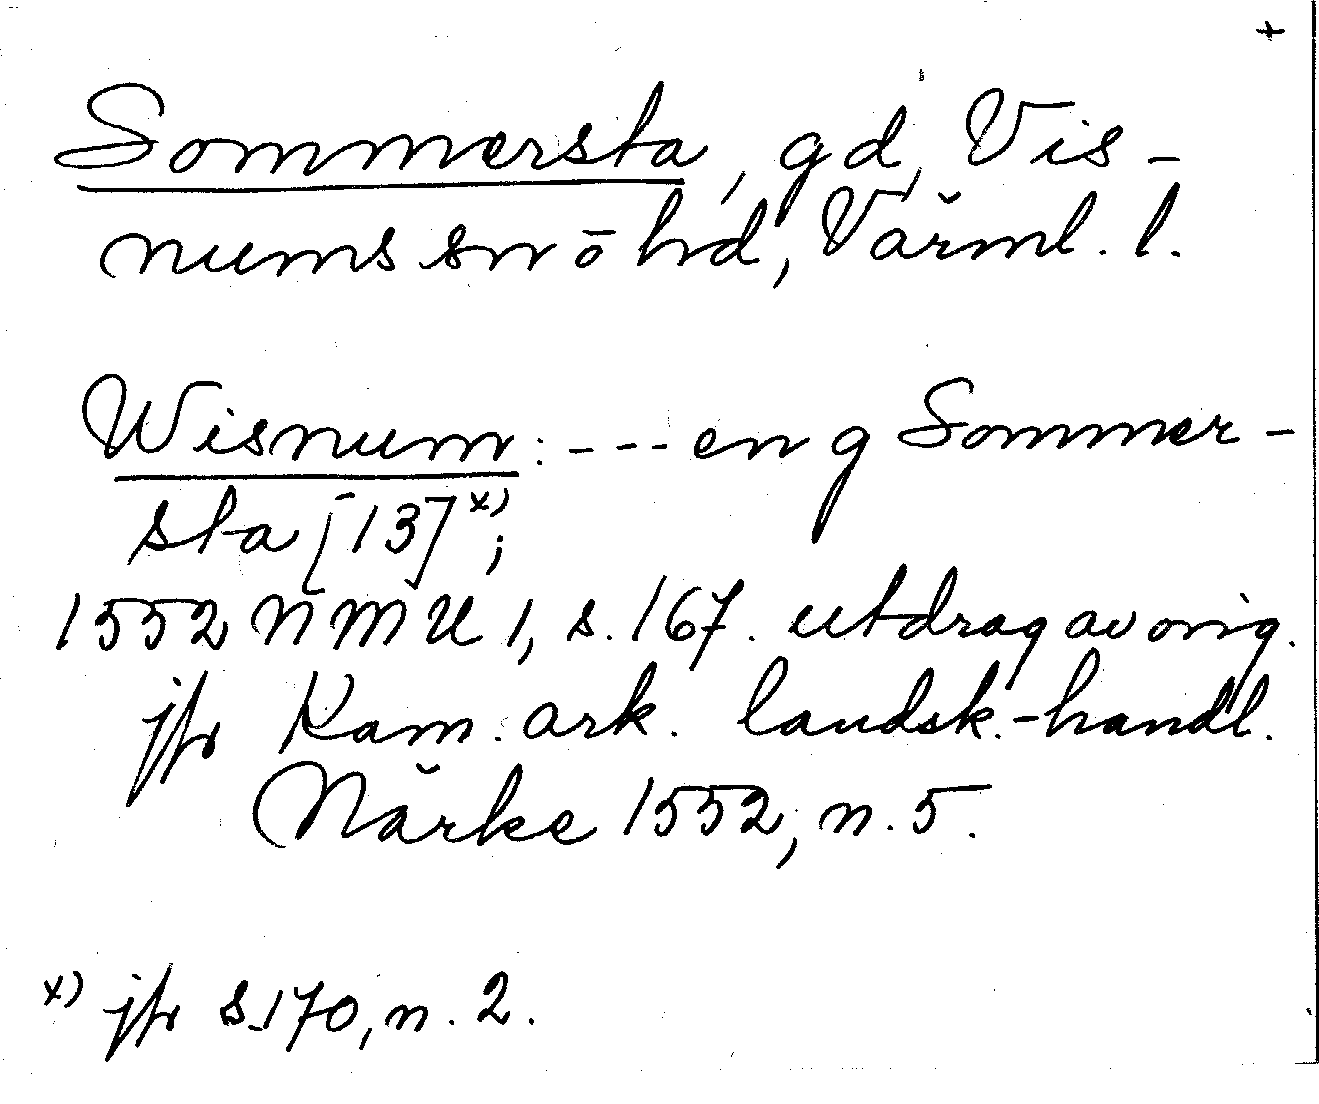 +
Sommersta, gd, Vis-
nums sn ö hd, Värml. l.
Wisnum: --- en g Sommer-
sta [13]x);
1552 NMU 1, s. 167. utdrag av orig.
jfr Kam. ark. landsk.-handl.
Närke 1552, n. 5.
x) jfr s. 170, n. 2.